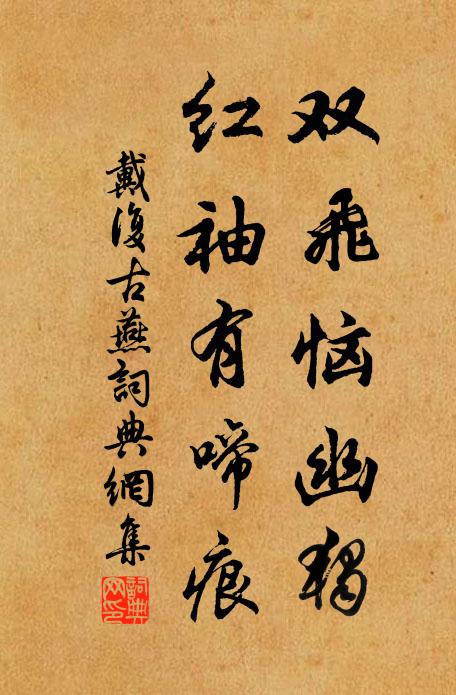 双飛恼幽獨
红袖有啼痕
戴復古燕詞典網集
詞典网印